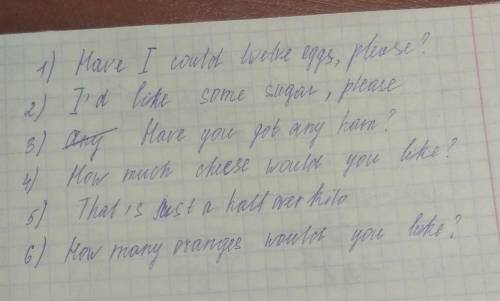 1) Have I could twelve eggs, please?
2) I'd like some sugar, please
3) any Have you got any ham?
4) How much cheese would you like?
5) That is just a half over kilo
6) How many oranges would you like?